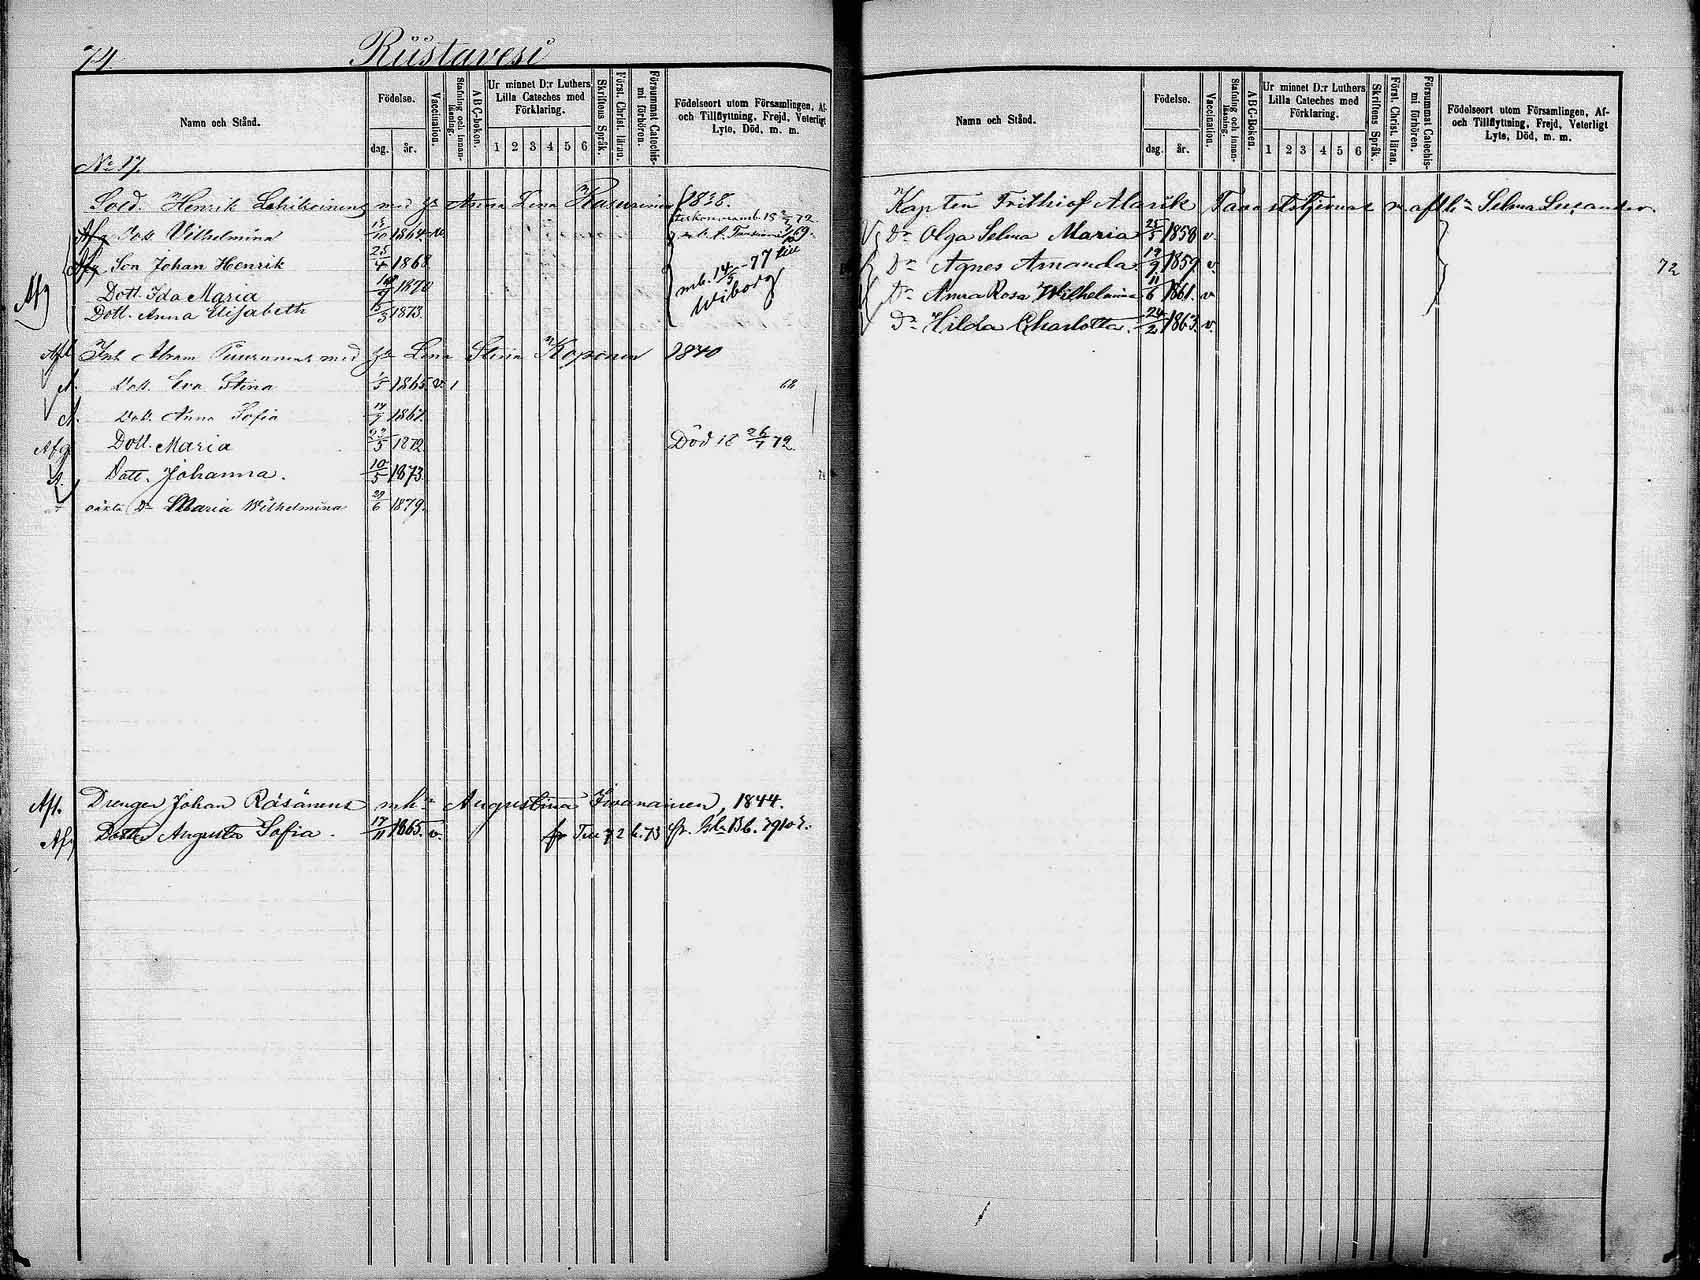 74.
Riistavesi
Namn och Stånd.
Födelse.
dag.
år.
Vaccination.
Stafning och innanläsning.
ABC-boken.
Ur minnet D:r Luthers Lilla Cateches med Förklaring.
1 2 3 4 5 6
Skriftens Språk.
Först. Christ. läran.
Försummat Catechismi förhören.
Födelseort utom Församlingen, Af- och Tillflyttning, Frejd, Veterligt Lyte, Död, m. m.
No 17.
Sold. Henrik Lehikoinens med Anna Lena 1838.
Afg Dott Vilhelmina 13/10 1864
Afg Son Johan Henrik 25/4 1868
Afg Dott. Ida Maria 1870
Dott. Anna Elisabeth 1873.
mb. 14/5 -77 till Wiborg
Afl Abram med Lena Stina Koponen 1840
A. Dott. Eva Stina 1/5 1865 v. 1
A. Dott. Anna Sofia 1867.
Afg Dott. Maria 1872 Död 18 26/7 72
A. Dott. Johanna. 10/5 1873.
oäkta Dr Maria Wilhelmina 29/6 1879.
Aft. Drengen Johan Räsänens Augustina 1844.
Afg Dottr Augusta Sofia. 17/11 1865. v.
Namn och Stånd.
Födelse.
dag.
år.
Vaccination.
Stafning och innanläsning.
ABC-Boken.
Ur minnet D:r Luthers Lilla Cateches med Förklaring.
1 2 3 4 5 6
Skriftens Språk.
Först. Christ. läran.
Försummat Catechismi förhören.
Födelseort utom Församlingen, Af- och Tillflyttning, Frejd, Veterligt Lyte, Död, m. m.
Kapten Frithiof Alarik Tavaststjernas Selma
Dr Olga Selma Maria 25/5 1858 v.
Dr Agnes Amanda 19/9 1859 v. 72
Dr Anna Rosa Wilhelmina 11/6 1861. v
Dr Hilda Charlotta. 24/2 1863. v.